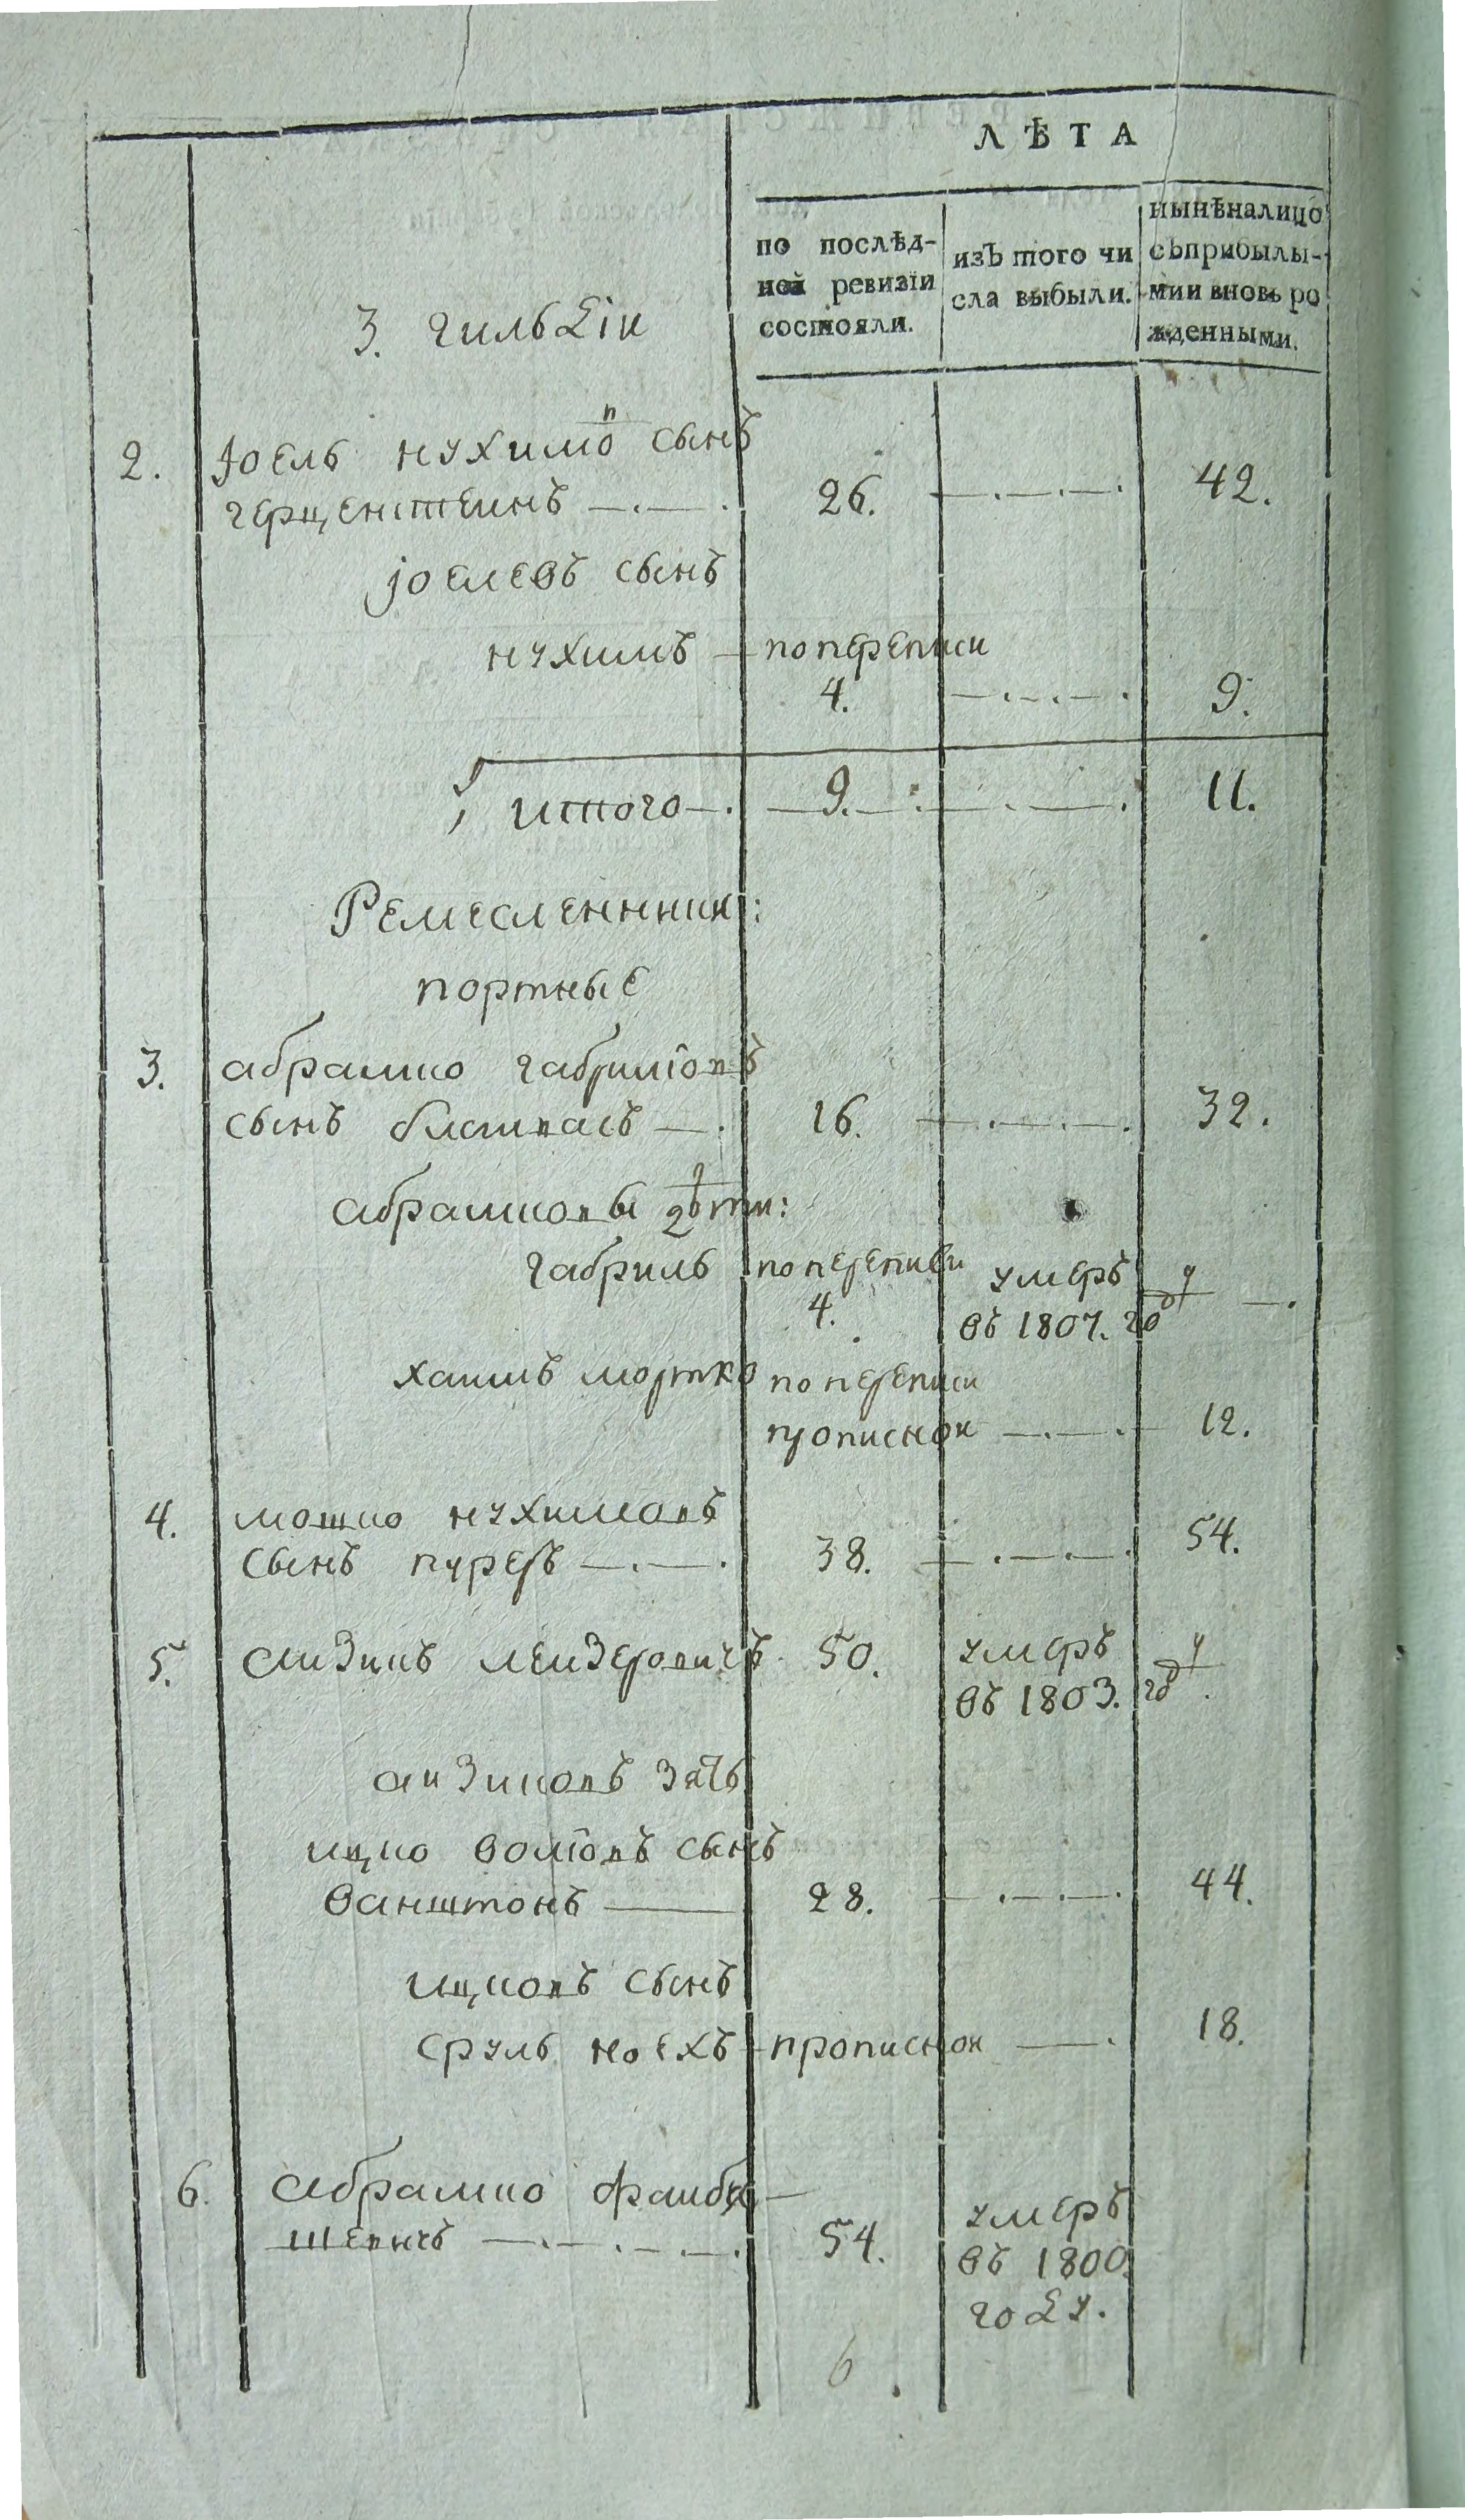 ЛѢТА
по послѣд-
ной ревизіи
состояли.
изъ того чи
сла выбыли.
нынѣ налицо
съ прибылы-
мии вновь ро
жденными.
3. гильдіи
2. Іоель нухимов сынъ
герценштеинъ 26. 42.
іоелевъ сынъ
нухимъ по переписи
4. 9.
итого 9. 11.
Ремесленники:
портные
3. абрамко габрилiовъ
сынъ 16. 32.
абрамковы дѣти:
габриль по переписи умеръ
4. въ 1807. году
хаимъ мортко по переписи
прописнои 12.
4. мошко нухимовъ
сынъ 38. 54.
5. аизикъ леизеровичъ 50. умеръ
въ 1803. году
аизиковъ зять
ицко волiовъ сынъ
ванштокъ 28. 44.
ицковъ сынъ
сруль ноехъ прописнои 18.
6. Абрамко фаиби-
шевичъ 54. умеръ
въ 1800.
году.
6